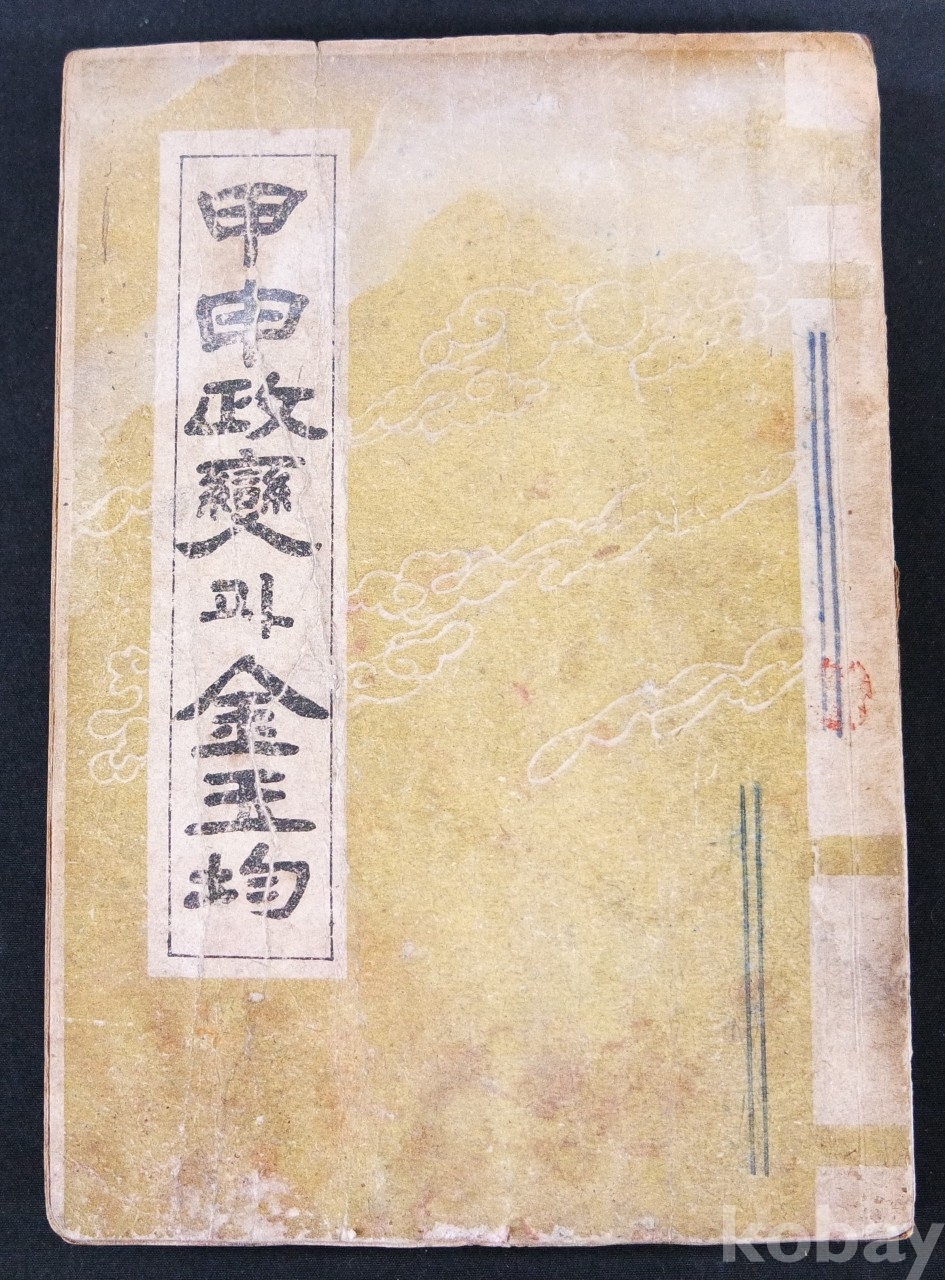 甲申政變과金玉均
kobay